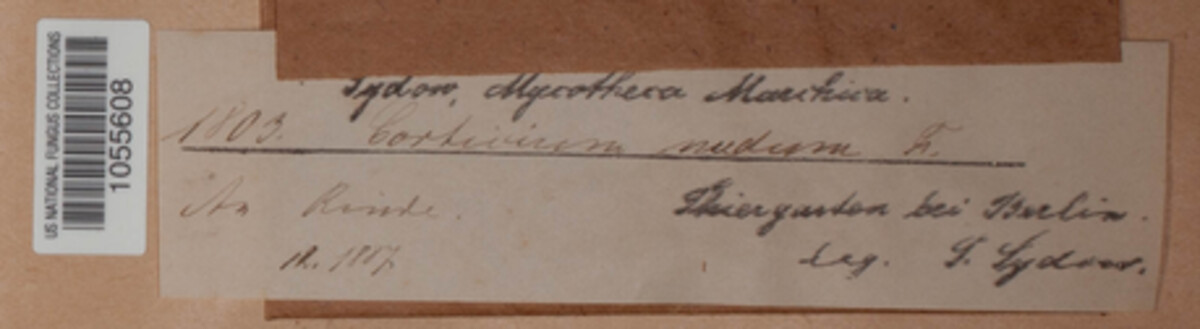 US NATIONAL FUNGUS COLLECTIONS
1055608
Sydow, Mycotheca Marchica.
1803. Corticium nudum Fr.
An Rinde.
Thiergarten bei Berlin.
1887.
leg. P. Sydow.